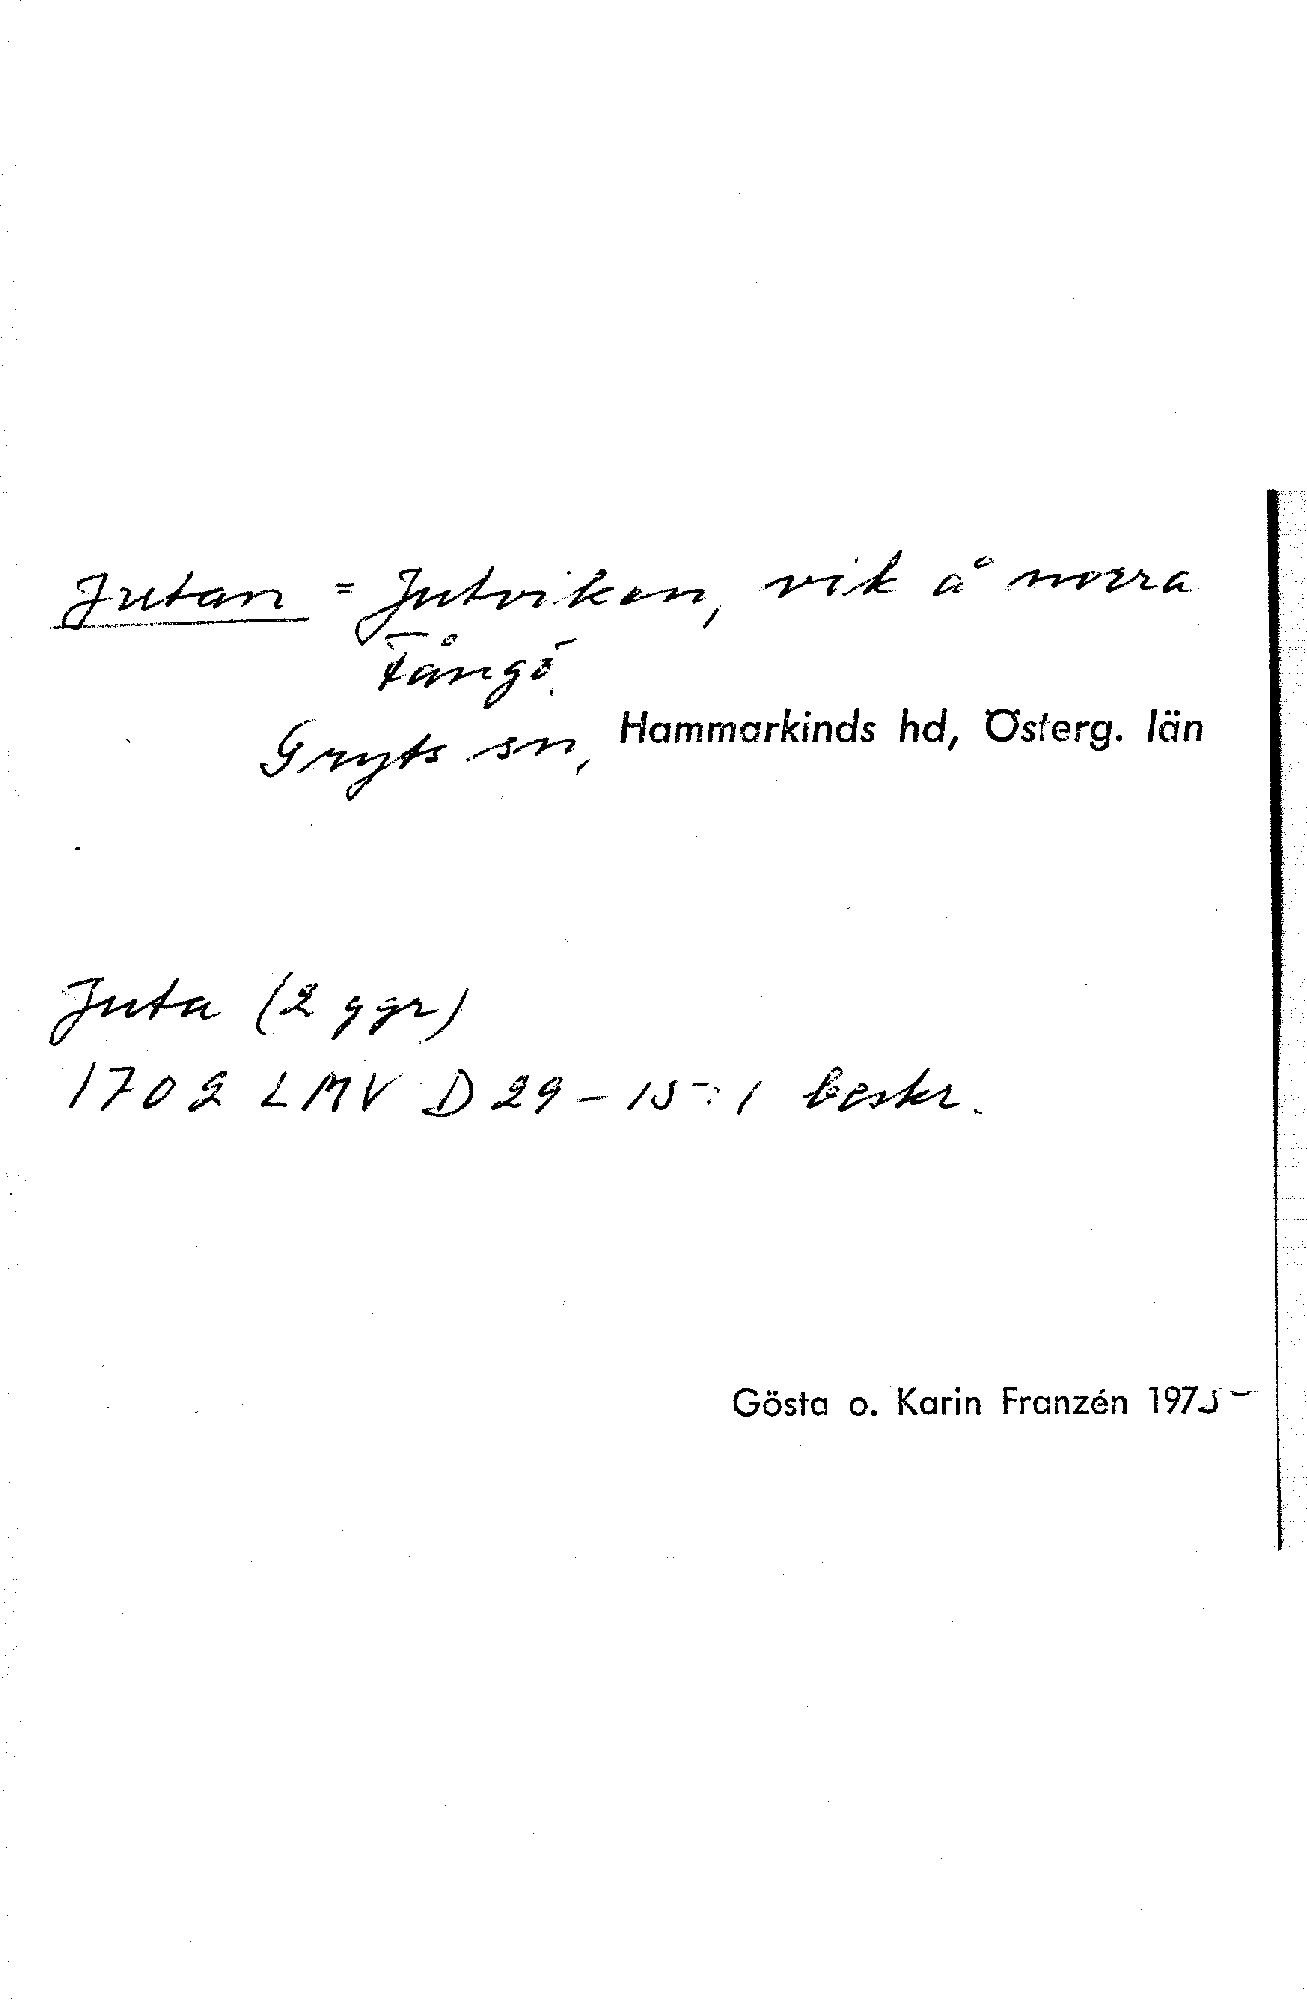 Jutan = Jutviken, vik å norra
Fångö.
Gryts sn, Hammarkinds hd, Österg. län
Juta (2 ggr)
1702 LMV D29-15:1 beskr.
Gösta o. Karin Franzén 1975